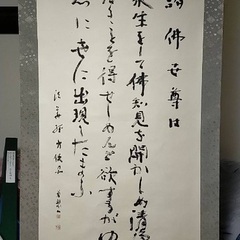 諸佛世尊は
衆生をして佛知見を開かしめ清淨
なることを得せしめんと欲するが故
に世に出現したまふ
法華経方便品